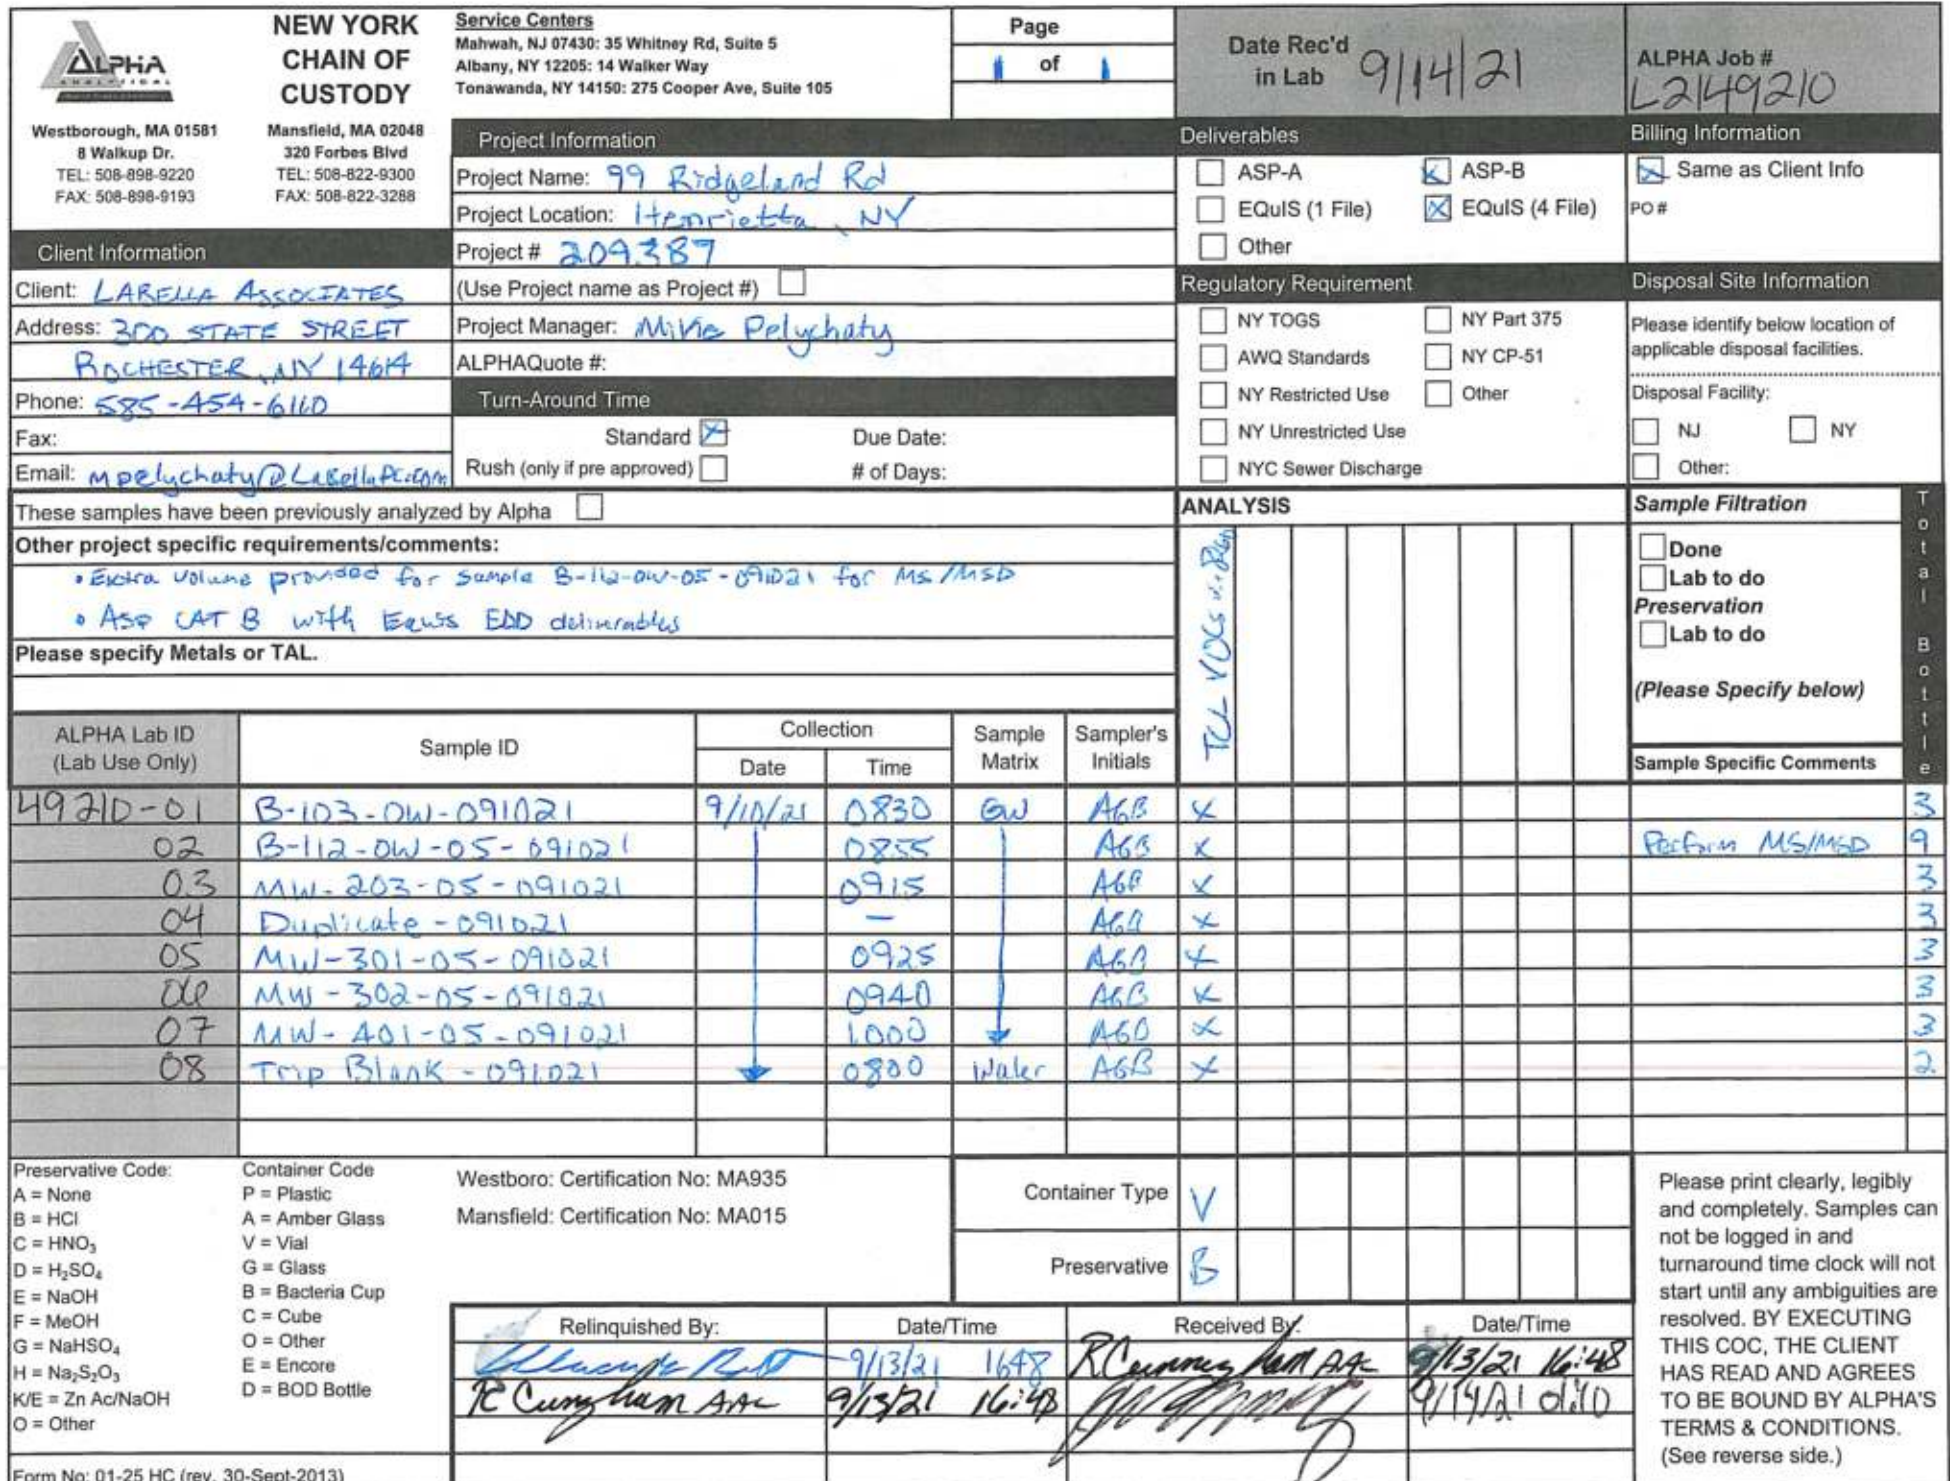 ALPHA
ANALYTICAL
NEW YORK
CHAIN OF
CUSTODY
Westborough, MA 01581
8 Walkup Dr.
TEL: 508-898-9220
FAX: 508-898-9193
Mansfield, MA 02048
320 Forbes Blvd
TEL: 508-822-9300
FAX: 508-822-3288
Service Centers
Mahwah, NJ 07430: 35 Whitney Rd, Suite 5
Albany, NY 12205: 14 Walker Way
Tonawanda, NY 14150: 275 Cooper Ave, Suite 105
Page
1 of 1
Date Rec'd
in Lab 9/14/21
ALPHA Job #
L2149210
Client Information
Client: LABELLA ASSOCIATES
Address: 300 STATE STREET
ROCHESTER, NY 14614
Phone: 585-454-6110
Fax:
Email: mpelychaty@LabellaPC.com
Project Information
Project Name: 99 Ridgeland Rd
Project Location: Henrietta, NY
Project # 209387
(Use Project name as Project #)
Project Manager: Mike Pelychaty
ALPHAQuote #:
Turn-Around Time
Standard Due Date:
Rush (only if pre approved) # of Days:
Deliverables
ASP-A ASP-B
EQuIS (1 File) EQuIS (4 File)
Other
Billing Information
Same as Client Info
PO #
Regulatory Requirement
NY TOGS NY Part 375
AWQ Standards NY CP-51
NY Restricted Use Other
NY Unrestricted Use
NYC Sewer Discharge
Disposal Site Information
Please identify below location of
applicable disposal facilities.
Disposal Facility:
NJ NY
Other:
These samples have been previously analyzed by Alpha
Other project specific requirements/comments:
• Extra volume provided for sample B-112-OW-05-091021 for MS/MSD
• ASP CAT B with Equis EDD deliverables
Please specify Metals or TAL.
ANALYSIS
TCL VOCs
Sample Filtration
Done
Lab to do
Preservation
Lab to do
(Please Specify below)
Total Bottle
ALPHA Lab ID
(Lab Use Only)
Sample ID
Collection
Date Time
Sample
Matrix
Sampler's
Initials
Sample Specific Comments
49210-01 B-103-OW-091021 9/10/21 0830 GW AGB X 3
02 B-112-OW-05-091021 0855 AGB X Perform MS/MSD 9
03 MW-203-05-091021 0915 AGB X 3
04 Duplicate-091021 — AGB X 3
05 MW-301-05-091021 0925 AGB X 3
06 MW-302-05-091021 0940 AGB X 3
07 MW-401-05-091021 1000 AGB X 3
08 Trip Blank-091021 0800 Water AGB X 2
Preservative Code:
A = None
B = HCl
C = HNO₃
D = H₂SO₄
E = NaOH
F = MeOH
G = NaHSO₄
H = Na₂S₂O₃
K/E = Zn Ac/NaOH
O = Other
Container Code
P = Plastic
A = Amber Glass
V = Vial
G = Glass
B = Bacteria Cup
C = Cube
O = Other
E = Encore
D = BOD Bottle
Westboro: Certification No: MA935
Mansfield: Certification No: MA015
Container Type V
Preservative B
Relinquished By: Date/Time Received By: Date/Time
9/13/21 1648 R Cunningham AAC 9/13/21 16:48
R Cunningham AAC 9/13/21 16:48 9/14/21 01:10
Please print clearly, legibly
and completely. Samples can
not be logged in and
turnaround time clock will not
start until any ambiguities are
resolved. BY EXECUTING
THIS COC, THE CLIENT
HAS READ AND AGREES
TO BE BOUND BY ALPHA'S
TERMS & CONDITIONS.
(See reverse side.)
Form No: 01-25 HC (rev. 30-Sept-2013)